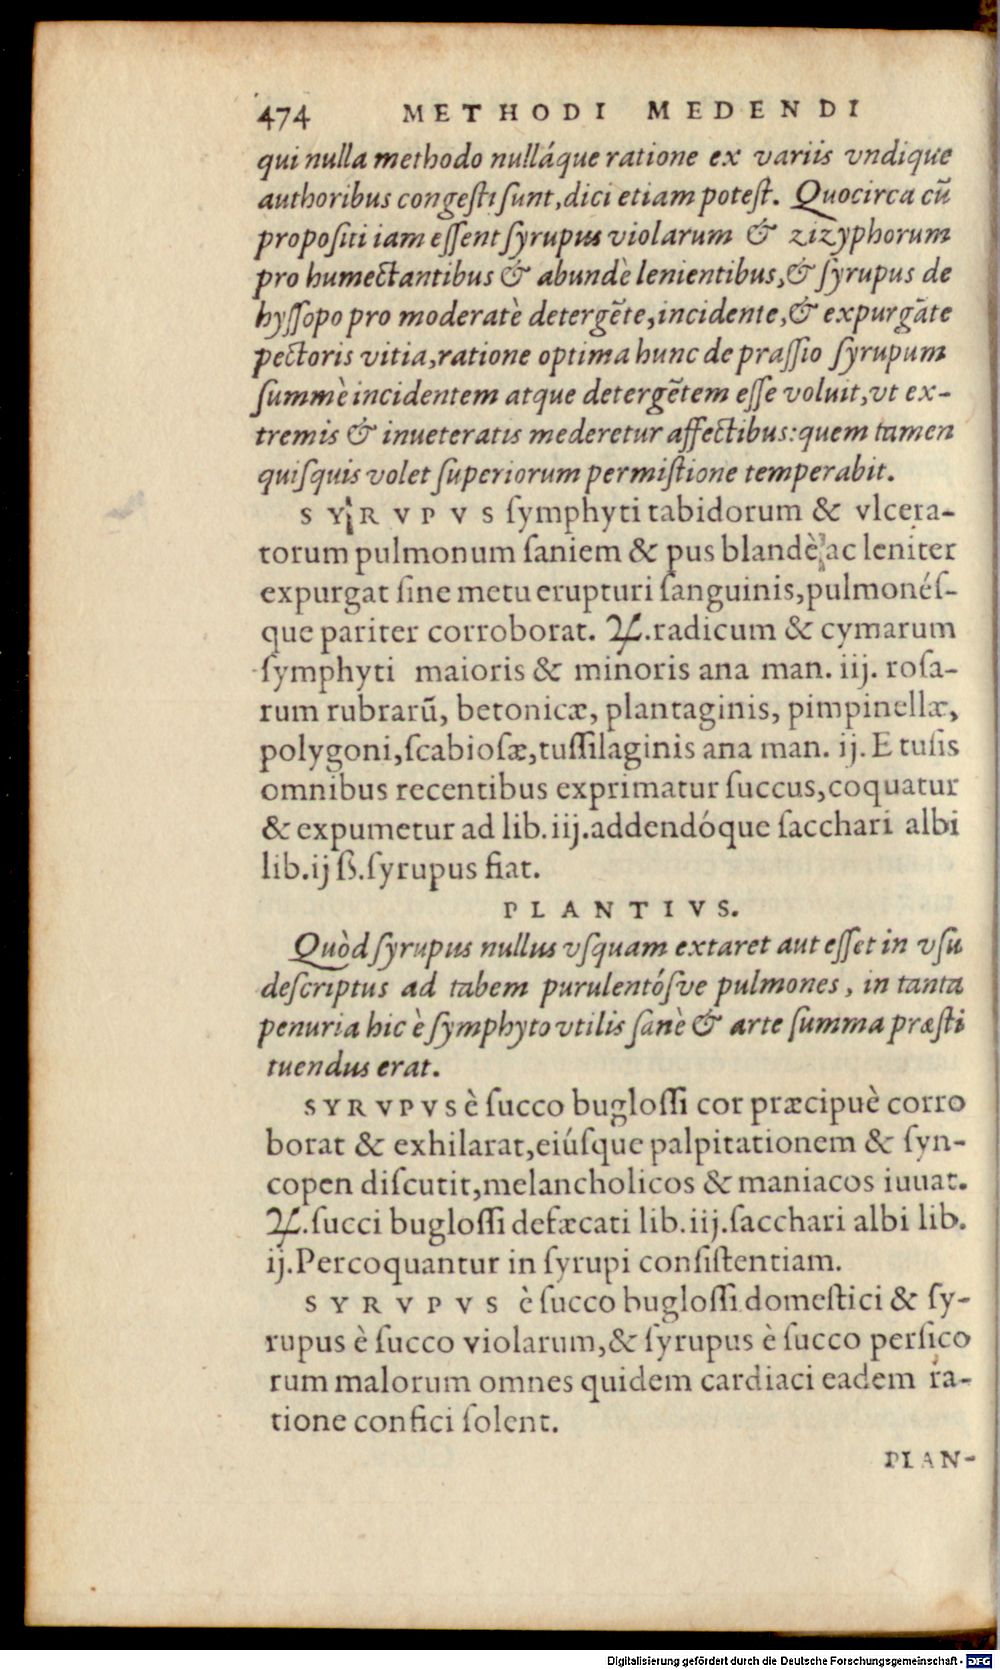 474 METHODI MEDENDI
qui nulla methodo nulláque ratione ex variis vndique
authoribus congesti sunt, dici etiam potest. Quocirca cũ
propositi iam essent syrupus violarum & zizyphorum
pro humectantibus & abundè lenientibus, & syrupus de
hyssopo pro moderatè detergẽte, incidente, & expurgãte
pectoris vitia, ratione optima hunc de prassio syrupum
summè incidentem atque detergẽtem esse voluit, vt ex-
tremis & inueteratis mederetur affectibus: quem tamen
quisquis volet superiorum permistione temperabit.
SYRVPVS symphyti tabidorum & vlcera-
torum pulmonum saniem & pus blandè ac leniter
expurgat sine metu erupturi sanguinis, pulmonés-
que pariter corroborat. ℞. radicum & cymarum
symphyti maioris & minoris ana man. iij. rosa-
rum rubrarũ, betonicæ, plantaginis, pimpinellæ,
polygoni, scabiosæ, tussilaginis ana man. ij. E tusis
omnibus recentibus exprimatur succus, coquatur
& expumetur ad lib. iij. addendóque sacchari albi
lib. ij ß. syrupus fiat.
PLANTIVS.
Quòd syrupus nullus vsquam extaret aut esset in vsu
descriptus ad tabem purulentósve pulmones, in tanta
penuria hic è symphyto vtilis sanè & arte summa præsti
tuendus erat.
SYRVPVS è succo buglossi cor præcipuè corro
borat & exhilarat, eiúsque palpitationem & syn-
copen discutit, melancholicos & maniacos iuuat.
℞. succi buglossi defæcati lib. iij. sacchari albi lib.
ij. Percoquantur in syrupi consistentiam.
SYRVPVS è succo buglossi domestici & sy-
rupus è succo violarum, & syrupus è succo persico
rum malorum omnes quidem cardiaci eadem ra-
tione confici solent.
PLAN-
Digitalisierung gefördert durch die Deutsche Forschungsgemeinschaft - DFG